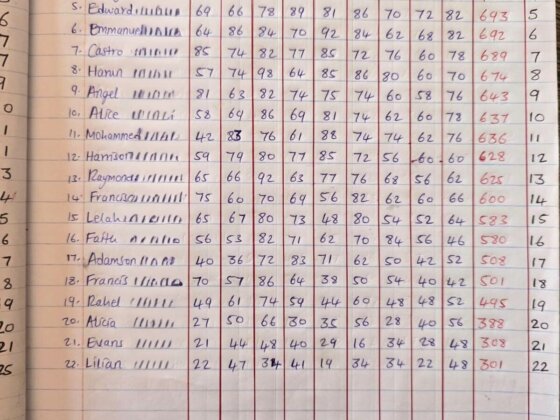 5. Edward 69 66 78 89 81 86 70 72 82 693 5
6. Emmanuel 64 86 84 70 92 84 62 68 82 692 6
7. Castro 85 74 82 77 85 72 76 60 78 689 7
8. Harun 57 74 98 64 85 86 80 60 70 674 8
9. Angel 81 63 82 74 75 74 60 58 76 643 9
10. Alice 58 69 86 69 81 74 62 60 78 637 10
11. Mohammed 42 83 76 61 88 74 74 62 76 636 11
12. Harrison 59 79 80 77 85 72 56 60 60 628 12
13. Raymond 65 66 92 63 77 76 68 56 62 625 13
14. Francisca 75 60 70 69 56 82 62 60 66 600 14
15. Lelah 65 67 80 73 48 80 54 52 64 583 15
16. Faith 56 53 82 71 62 70 84 56 46 580 16
17. Adamson 40 36 72 83 71 62 50 42 52 508 17
18. Francis 70 57 86 64 38 50 54 40 42 501 18
19. Rahel 49 61 74 59 44 60 48 48 52 495 19
20. Alicia 27 50 66 30 35 56 28 40 56 388 20
21. Evans 21 44 48 40 29 16 34 28 48 308 21
22. Lilian 22 47 34 41 19 34 34 22 48 301 22